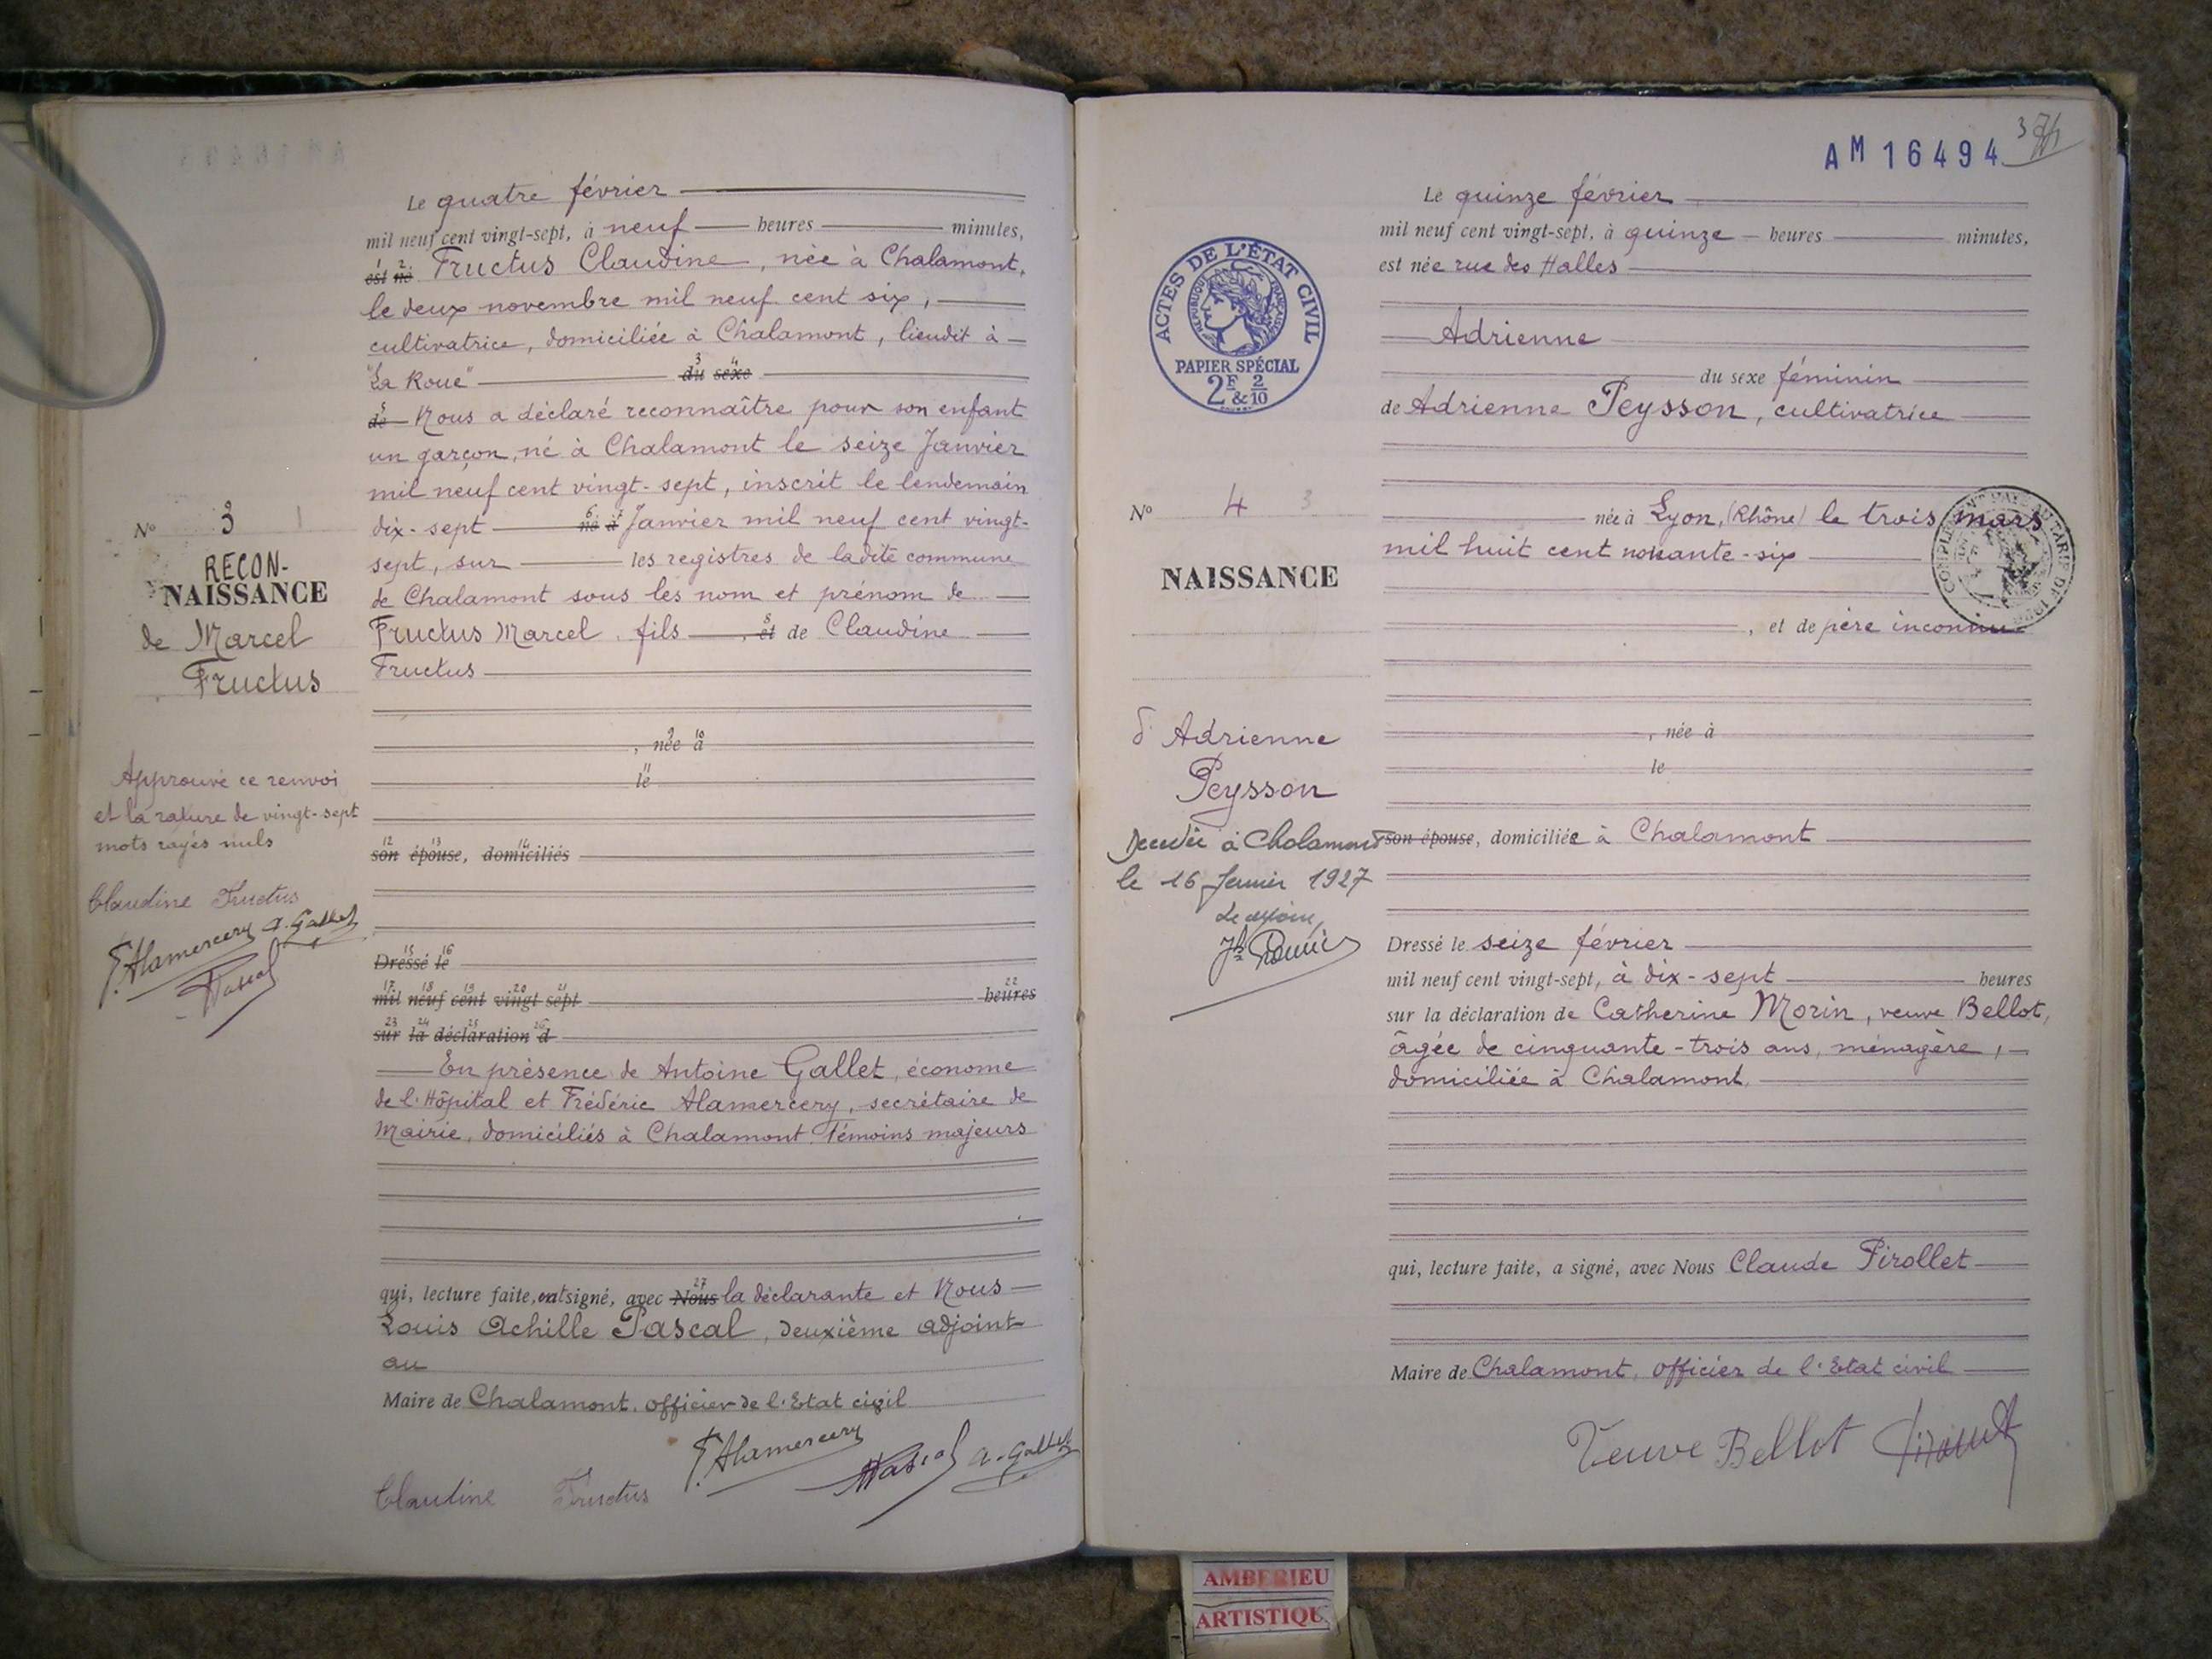 Le quatre février
mil neuf cent vingt-sept, à neuf heures minutes,
1 2
est né Fructus Claudine, née à Chalamont,
le deux novembre mil neuf cent six,
cultivatrice, domiciliée à Chalamont, lieudit à
"La Roue" du sexe
3 4
5
de Nous a déclaré reconnaître pour son enfant
un garçon, né à Chalamont le seize Janvier
mil neuf cent vingt-sept, inscrit le lendemain
dix-sept né à Janvier mil neuf cent vingt-
sept, sur les registres de ladite commune
de Chalamont sous les nom et prénom de
Fructus Marcel, fils , et de Claudine
Fructus
9 10
, née à
11
le
12 13 14
son épouse, domiciliés
15 16
Dressé le
17 18 19 20 21 22
mil neuf cent vingt sept heures
23 24 25 26
sur la déclaration d
En présence de Antoine Gallet, économe
de l'Hôpital et Frédéric Alamercery, secrétaire de
Mairie, domiciliés à Chalamont témoins majeurs
27
qui, lecture faite, ont signé, avec Nous la déclarante et Nous
Louis Achille Pascal, deuxième adjoint
au
Maire de Chalamont, officier de l'Etat civil
Claudine Fructus F. Alamercery Pascal A. Gallet
N° 3
RECON-
NAISSANCE
de Marcel
Fructus
Approuvé ce renvoi
et la rature de vingt-sept
mots rayés nuls
Claudine Fructus
F. Alamercery A. Gallet
Pascal
AM 16494
37
ACTES DE L'ÉTAT CIVIL
RÉPUBLIQUE FRANÇAISE
PAPIER SPÉCIAL
2F & 2/10
N° 4 3
NAISSANCE
d'Adrienne
Peysson
Décédée à Chalamont
le 16 février 1927
Le Maire
Le quinze février
mil neuf cent vingt-sept, à quinze heures minutes,
est née rue des Halles
Adrienne
du sexe féminin
de Adrienne Peysson, cultivatrice
née à Lyon, (Rhône) le trois mars
mil huit cent nonante-six
, et de père inconnu
, née à
le
son épouse, domiciliée à Chalamont
Dressé le seize février
mil neuf cent vingt-sept, à dix-sept heures
sur la déclaration de Catherine Morin, veuve Bellot,
âgée de cinquante-trois ans, ménagère,
domiciliée à Chalamont.
qui, lecture faite, a signé, avec Nous Claude Pirollet
Maire de Chalamont, officier de l'Etat civil
Veuve Bellot
AMBERIEU
ARTISTIQU